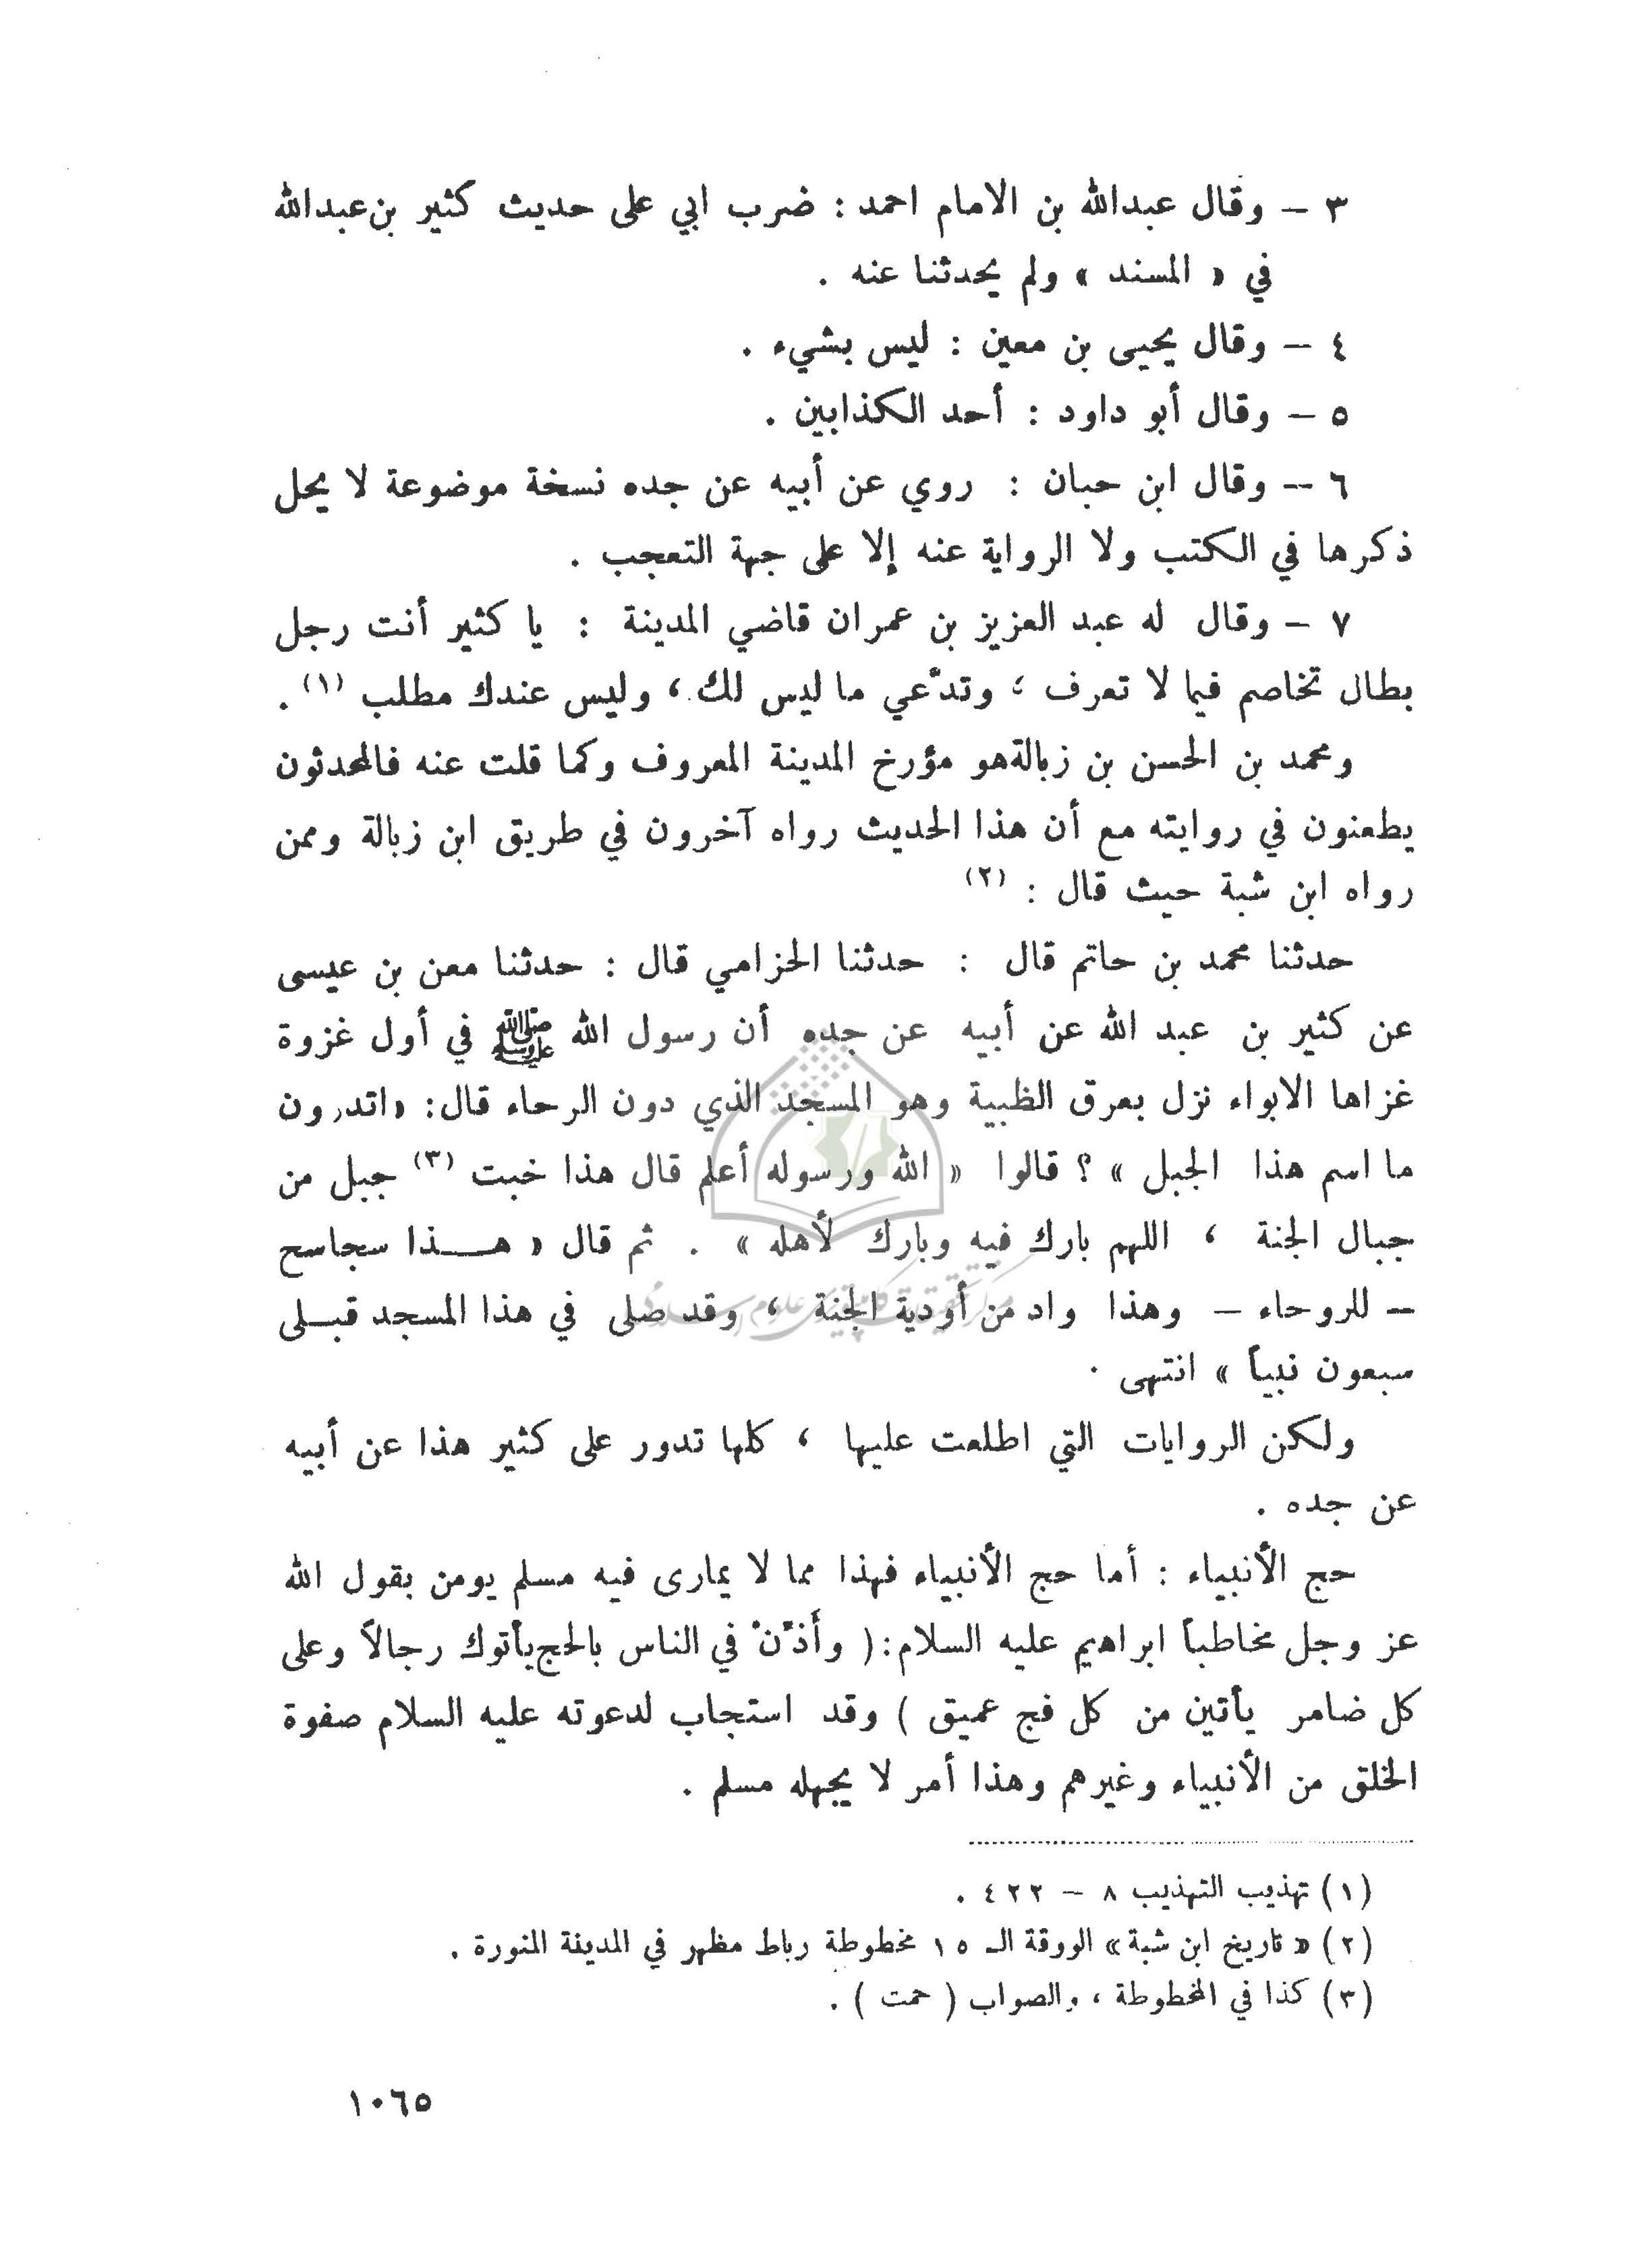 ٣ – وقال عبدالله بن الامام احمد : ضرب ابي على حديث كثير بن عبدالله
في « المسند » ولم يحدثنا عنه .
٤ – وقال يحيى بن معين : ليس بشيء .
٥ – وقال أبو داود : أحد الكذابين .
٦ – وقال ابن حبان : روي عن أبيه عن جده نسخة موضوعة لا يحل
ذكرها في الكتب ولا الرواية عنه إلا على جهة التعجب .
٧ – وقال له عبد العزيز بن عمران قاضي المدينة : يا كثير أنت رجل
بطال تخاصم فيما لا تعرف ؛ وتدّعي ما ليس لك ، وليس عندك مطلب (١) .
ومحمد بن الحسن بن زبالةهو مؤرخ المدينة المعروف وكما قلت عنه فالمحدثون
يطعنون في روايته مع أن هذا الحديث رواه آخرون في طريق ابن زبالة وممن
رواه ابن شبة حيث قال : (٢)
حدثنا محمد بن حاتم قال : حدثنا الحزامي قال : حدثنا معن بن عيسى
عن كثير بن عبد الله عن أبيه عن جده أن رسول الله ﷺ في أول غزوة
غزاها الابواء نزل بعرق الظبية وهو المسجد الذي دون الرحاء قال: «اتدرون
ما اسم هذا الجبل » ؟ قالوا « الله ورسوله أعلم قال هذا خبت (٣) جبل من
جبال الجنة ، اللهم بارك فيه وبارك لأهله » . ثم قال « هـــذا سجاسج
– للروحاء – وهذا واد من أودية الجنة ، وقد صلى في هذا المسجد قبـلى
سبعون نبياً » انتهى .
ولكن الروايات التي اطلعت عليها ، كلها تدور على كثير هذا عن أبيه
عن جده .
حج الأنبياء : أما حج الأنبياء فهذا مما لا يمارى فيه مسلم يومن بقول الله
عز وجل مخاطباً ابراهيم عليه السلام: ( وأَذّنْ في الناس بالحج يأتوك رجالاً وعلى
كل ضامر يأتين من كل فج عميق ) وقد استجاب لدعوته عليه السلام صفوة
الخلق من الأنبياء وغيرهم وهذا أمر لا يجهله مسلم .
(١) تهذيب التهذيب ٨ – ٤٢٢ .
(٢) « تاريخ ابن شبة » الورقة الـ ١٥ مخطوطة رباط مظهر في المدينة المنورة .
(٣) كذا في المخطوطة ، والصواب ( حمت ) .
١٠٦٥